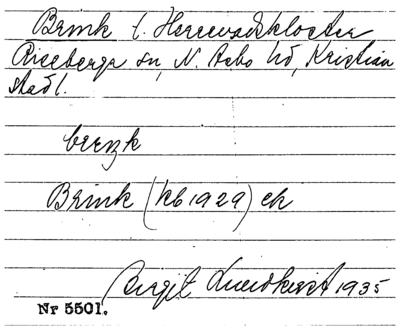 Brink t. Herrevadskloster
Riseberga sn, N. Åsbo hd, Kristian
stad l.
brenk
Brink (kb 1929) ek
Birgit Lundkvist 1935
Nr 5501.